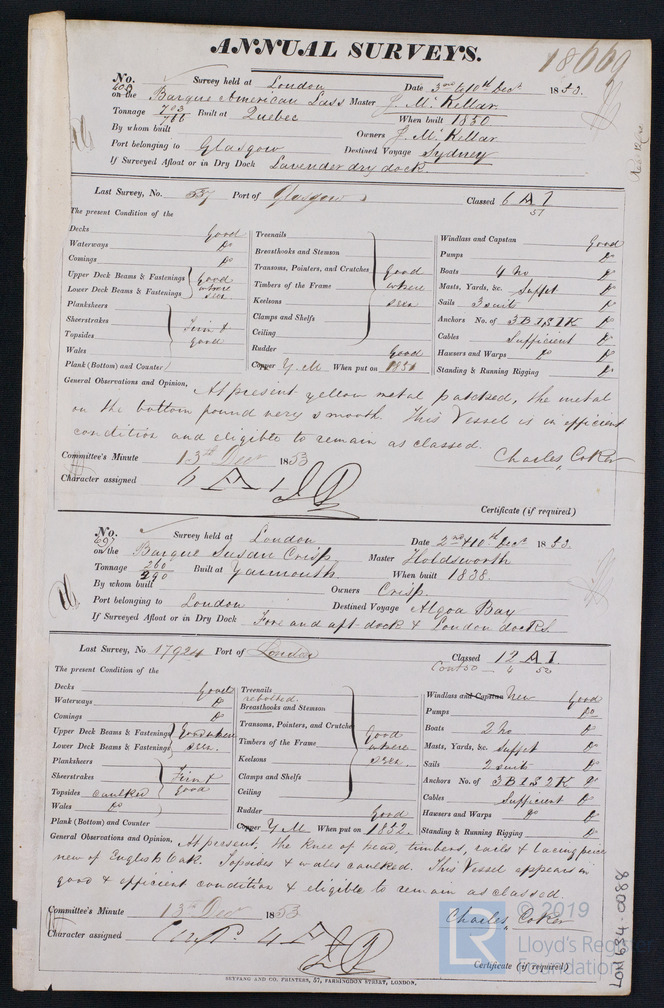 ANNUAL SURVEYS.
18669
No. 690 Survey held at London Date 3rd & 10th Decr. 1853.
on the Barque American Lass Master J. McKellar
Tonnage 703 Built at Quebec When built 1850
766
By whom built Owners J. McKellar
Port belonging to Glasgow Destined Voyage Sydney
If Surveyed Afloat or in Dry Dock Lavender dry dock.
Last Survey, No. 557 Port of Glasgow Classed 6 A 1
51
The present Condition of the
Decks Good
Waterways Do
Comings Do
Upper Deck Beams & Fastenings Good
Lower Deck Beams & Fastenings where seen
Planksheers
Sheerstrakes Firm &
Topsides good
Wales
Plank (Bottom) and Counter
Treenails
Breasthooks and Stemson
Transoms, Pointers, and Crutches Good
Timbers of the Frame where
Keelsons seen
Clamps and Shelfs
Ceiling
Rudder Good
Copper Y.M. When put on 1851
Windlass and Capstan Good
Pumps Do
Boats 4 No Do
Masts, Yards, &c. Suffet Do
Sails 3 suits Do
Anchors No. of 3B 1S 1K Do
Cables Sufficient Do
Hawsers and Warps Do Do
Standing & Running Rigging Do
General Observations and Opinion, At present yellow metal patched, the metal
on the bottom found very smooth. This Vessel is in efficient
condition and eligible to remain as classed.
Charles Coker
Committee's Minute 13th Decr 1853
Character assigned 6 A 1
Certificate (if required)
No. 691 Survey held at London Date 2nd & 10th Decr. 1853.
on the Barque Susan Crisp Master Holdsworth
Tonnage 260 Built at Yarmouth When built 1838.
290
By whom built Owners Crisp.
Port belonging to London Destined Voyage Algoa Bay
If Surveyed Afloat or in Dry Dock Fore and aft dock & London docks.
Last Survey, No 17924 Port of London Classed 12 A 1
Cont 50 - 4 50
The present Condition of the
Decks Good
Waterways Do
Comings Do
Upper Deck Beams & Fastenings Good where
Lower Deck Beams & Fastenings seen.
Planksheers
Sheerstrakes Firm &
Topsides caulked good
Wales Do
Plank (Bottom) and Counter
Treenails
rebolted.
Breasthooks and Stemson
Transoms, Pointers, and Crutches Good
Timbers of the Frame where
Keelsons seen.
Clamps and Shelfs
Ceiling
Rudder Good
Copper Y.M. When put on 1852.
Windlass and Capstan New Good
Pumps Do
Boats 2 No Do
Masts, Yards, &c. Suffet Do
Sails 2 suits Do
Anchors No. of 3B 1S 2K Do
Cables Sufficient Do
Hawsers and Warps Do Do
Standing & Running Rigging Do
General Observations and Opinion, At present, the knee of head, timbers, rails & lacing piece
new of English Oak. Topsides & wales caulked. This Vessel appears in
good & efficient condition & eligible to remain as classed.
Charles Coker
Committee's Minute 13th Decr 1853
Character assigned Contd. 4 A 1
Certificate (if required)
SEYFANG AND CO. PRINTERS, 57, FARRINGDON STREET, LONDON.
LON 634-0088
LR © 2019
Lloyd's Register
Foundation